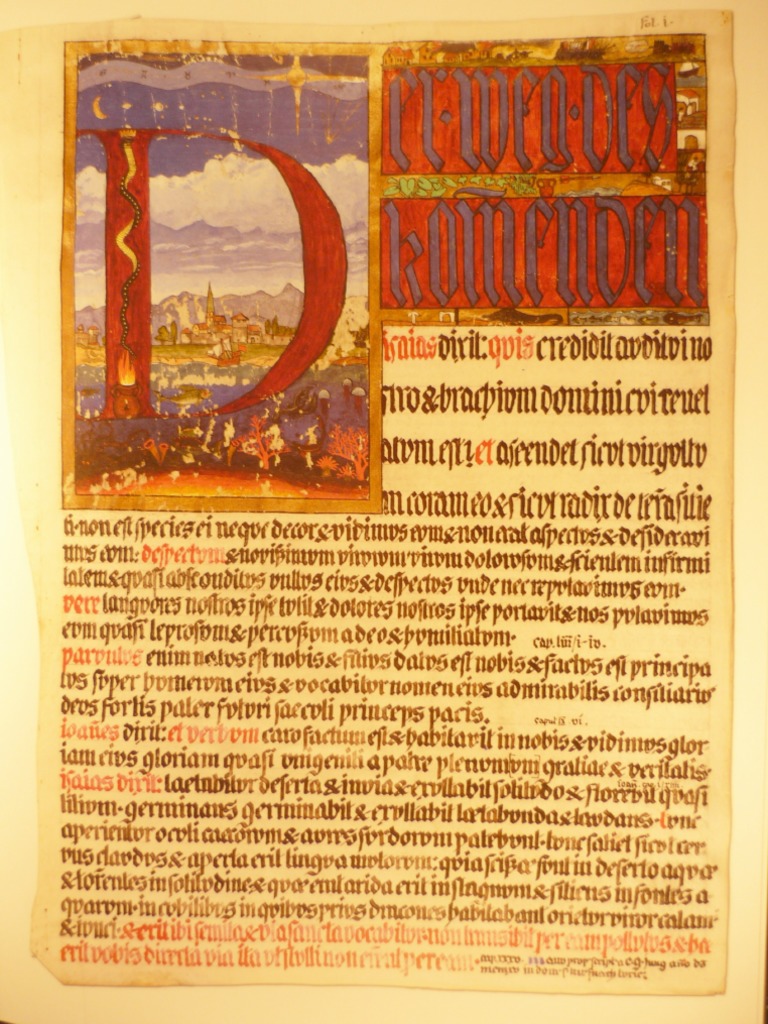 fol. i.
Der weg des
komenden
isaias dixit: quis credidit avditvi no
stro & brachivm domini cvi revel
atvm est? et ascendet sicvt virgvltv
m coram eo & sicvt radix de terra sitie
ti. non est species ei neqve decor & vidimvs evm & non erat aspectvs & desideravi
mvs evm: despectvm & novissimvm virorvm virvm dolorvm & scientem infirmi
tatem & qvasi absconditvs vvltvs eivs & despectvs vnde nec repvtavimvs evm.
vere langvores nostros ipse tvlit & dolores nostros ipse portavit & nos pvtavimvs
evm qvasi leprosvm & percvssvm a deo & hvmiliatvm. cap. liii/i-iv.
parvulus enim natvs est nobis & filivs datvs est nobis & factvs est principa
tvs svper hvmervm eivs & vocabitvr nomen eivs admirabilis consiliarivs
devs fortis pater fvtvri saecvli princeps pacis. caput ix. vi.
ioañes dixit: et verbvm caro factvm est & habitavit in nobis & vidimvs glor
iam eivs gloriam qvasi vnigeniti a patre plenvm gratiae & veritatis.
isaias dixit: laetabitvr deserta & invia & exvltabit solitvdo & florebit qvasi
lilivm. germinans germinabit & exvltabit laetabvnda & lavdans. tvnc
aperientvr ocvli caecorvm & avres svrdorvm patebvnt. tvnc saliet sicvt cer
vvs clavdvs & aperta erit lingva mvtorvm: qvia scissae svnt in deserto aqvae
& torrentes in solitvdine & qvae erat arida erit in stagnvm & sitiens in fontes a
qvarvm. in cvbilibvs in qvibvs privs dracones habitabant orietvr viror calami
& ivnci. & erit ibi semita & via sancta vocabitvr. non transibit per eam pollvtvs & ha
ec erit vobis directa via ita vt stvlti non errent per eam. cap. xxxv.